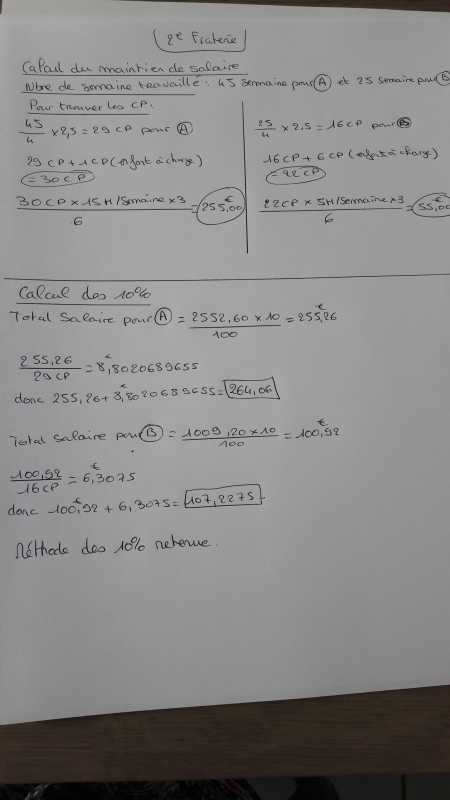 2e Fraterie
Calcul du maintien de salaire
Nbre de semaine travaillé : 45 semaine pour A et 25 semaine pour B
Pour trouver les CP :
45/4 x 2,5 = 29 CP pour A
29 CP + 1 CP (enfant à charge)
= 30 CP
30 CP x 15H/Semaine x 3 / 6 = 255,00€
25/4 x 2.5 = 16 CP pour B
16 CP + 6 CP (enfant à charge)
= 22 CP
22 CP x 5H/Semaine x 3 / 6 = 55,00€
Calcul des 10%
Total Salaire pour A = 2552,60 x 10 / 100 = 255,26€
255,26 / 29 CP = 8,8020689655€
donc 255,26 + 8,8020689655€ = 264,06
Total salaire pour B = 1009,20 x 10 / 100 = 100,92€
100,92 / 16 CP = 6,3075€
donc 100,92€ + 6,3075 = 107,2275
Méthode des 10% retenue.